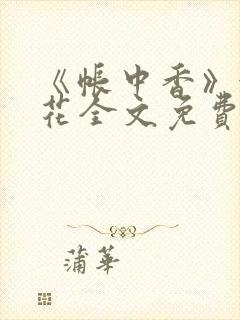 《帐中香》
花全文免費
蒲華